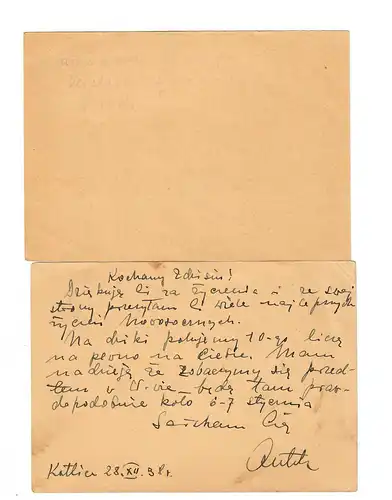 Kochany Zdzisiu!
Dziękuję Ci za życzenia i ze swej
strony przesyłam Ci wiele najlepszych
życzeń Noworocznych.
Na dziki polujemy 10-go liczę
na pewno na Ciebie. Mam
nadzieję że zobaczymy się przed
tem w W-wie będę tam praw-
dopodobnie koło 6-7 stycznia
Ściskam Cię
28.XII.38r.